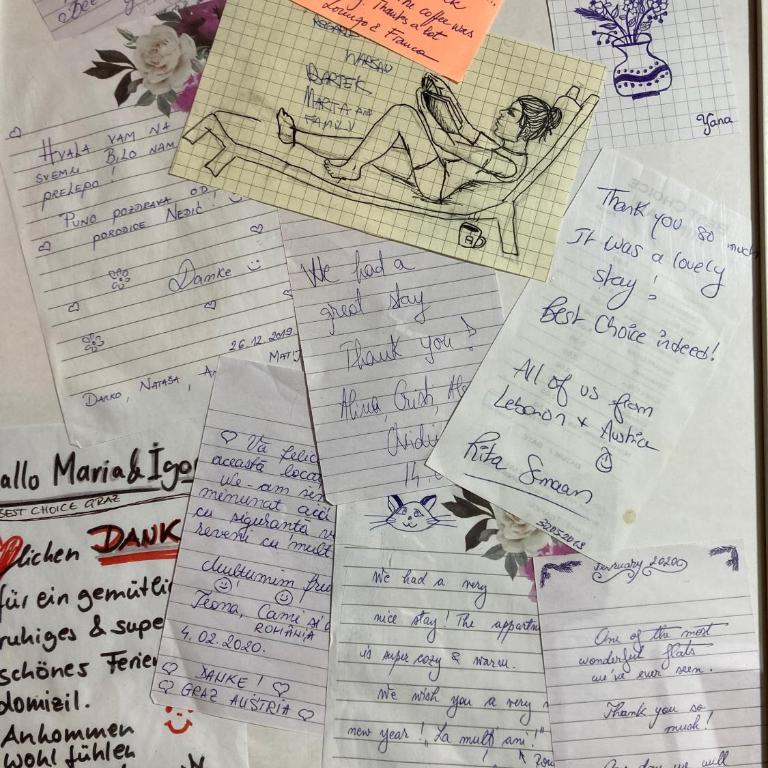 The coffee was
Thanks a lot
Lorenzo & Franca
WARSAW
BARTEK
MARTA AND
FAMILY
Yana
HVALA VAM NA
SVEMU BILO NAM
PRELEPO!
PUNO POZDRAVA OD
PORODICE NEDIĆ!
Danke
26.12.2019
DARKO, NATAŠA,
We had a
great stay
Thank you!
Alina, Crish,
Ovidiu
Thank you so much
It was a lovely
stay!
Best Choice indeed!
All of us from
Lebanon & Austria
Rita Smaan
Hallo Maria & İgo
BEST CHOICE GRAZ
lichen DANK
für ein gemütli
ruhiges & supe
schönes Ferien
domizil.
Ankommen
Wohl fühlen
Vă felic
această loca
We-am sim
minunat aici
cu siguranță v
reveni cu mult
Multumim fru
Teona, Cami si
ROMÂNIA
4.02.2020.
DANKE!
GRAZ AUSTRIA
We had a very
nice stay! The appartm
is super cozy & warm.
We wish you a very
new year! "La mulți ani!"
January 2020
One of the most
wonderful flats
we've ever seen.
Thank you so
much!
One day we will